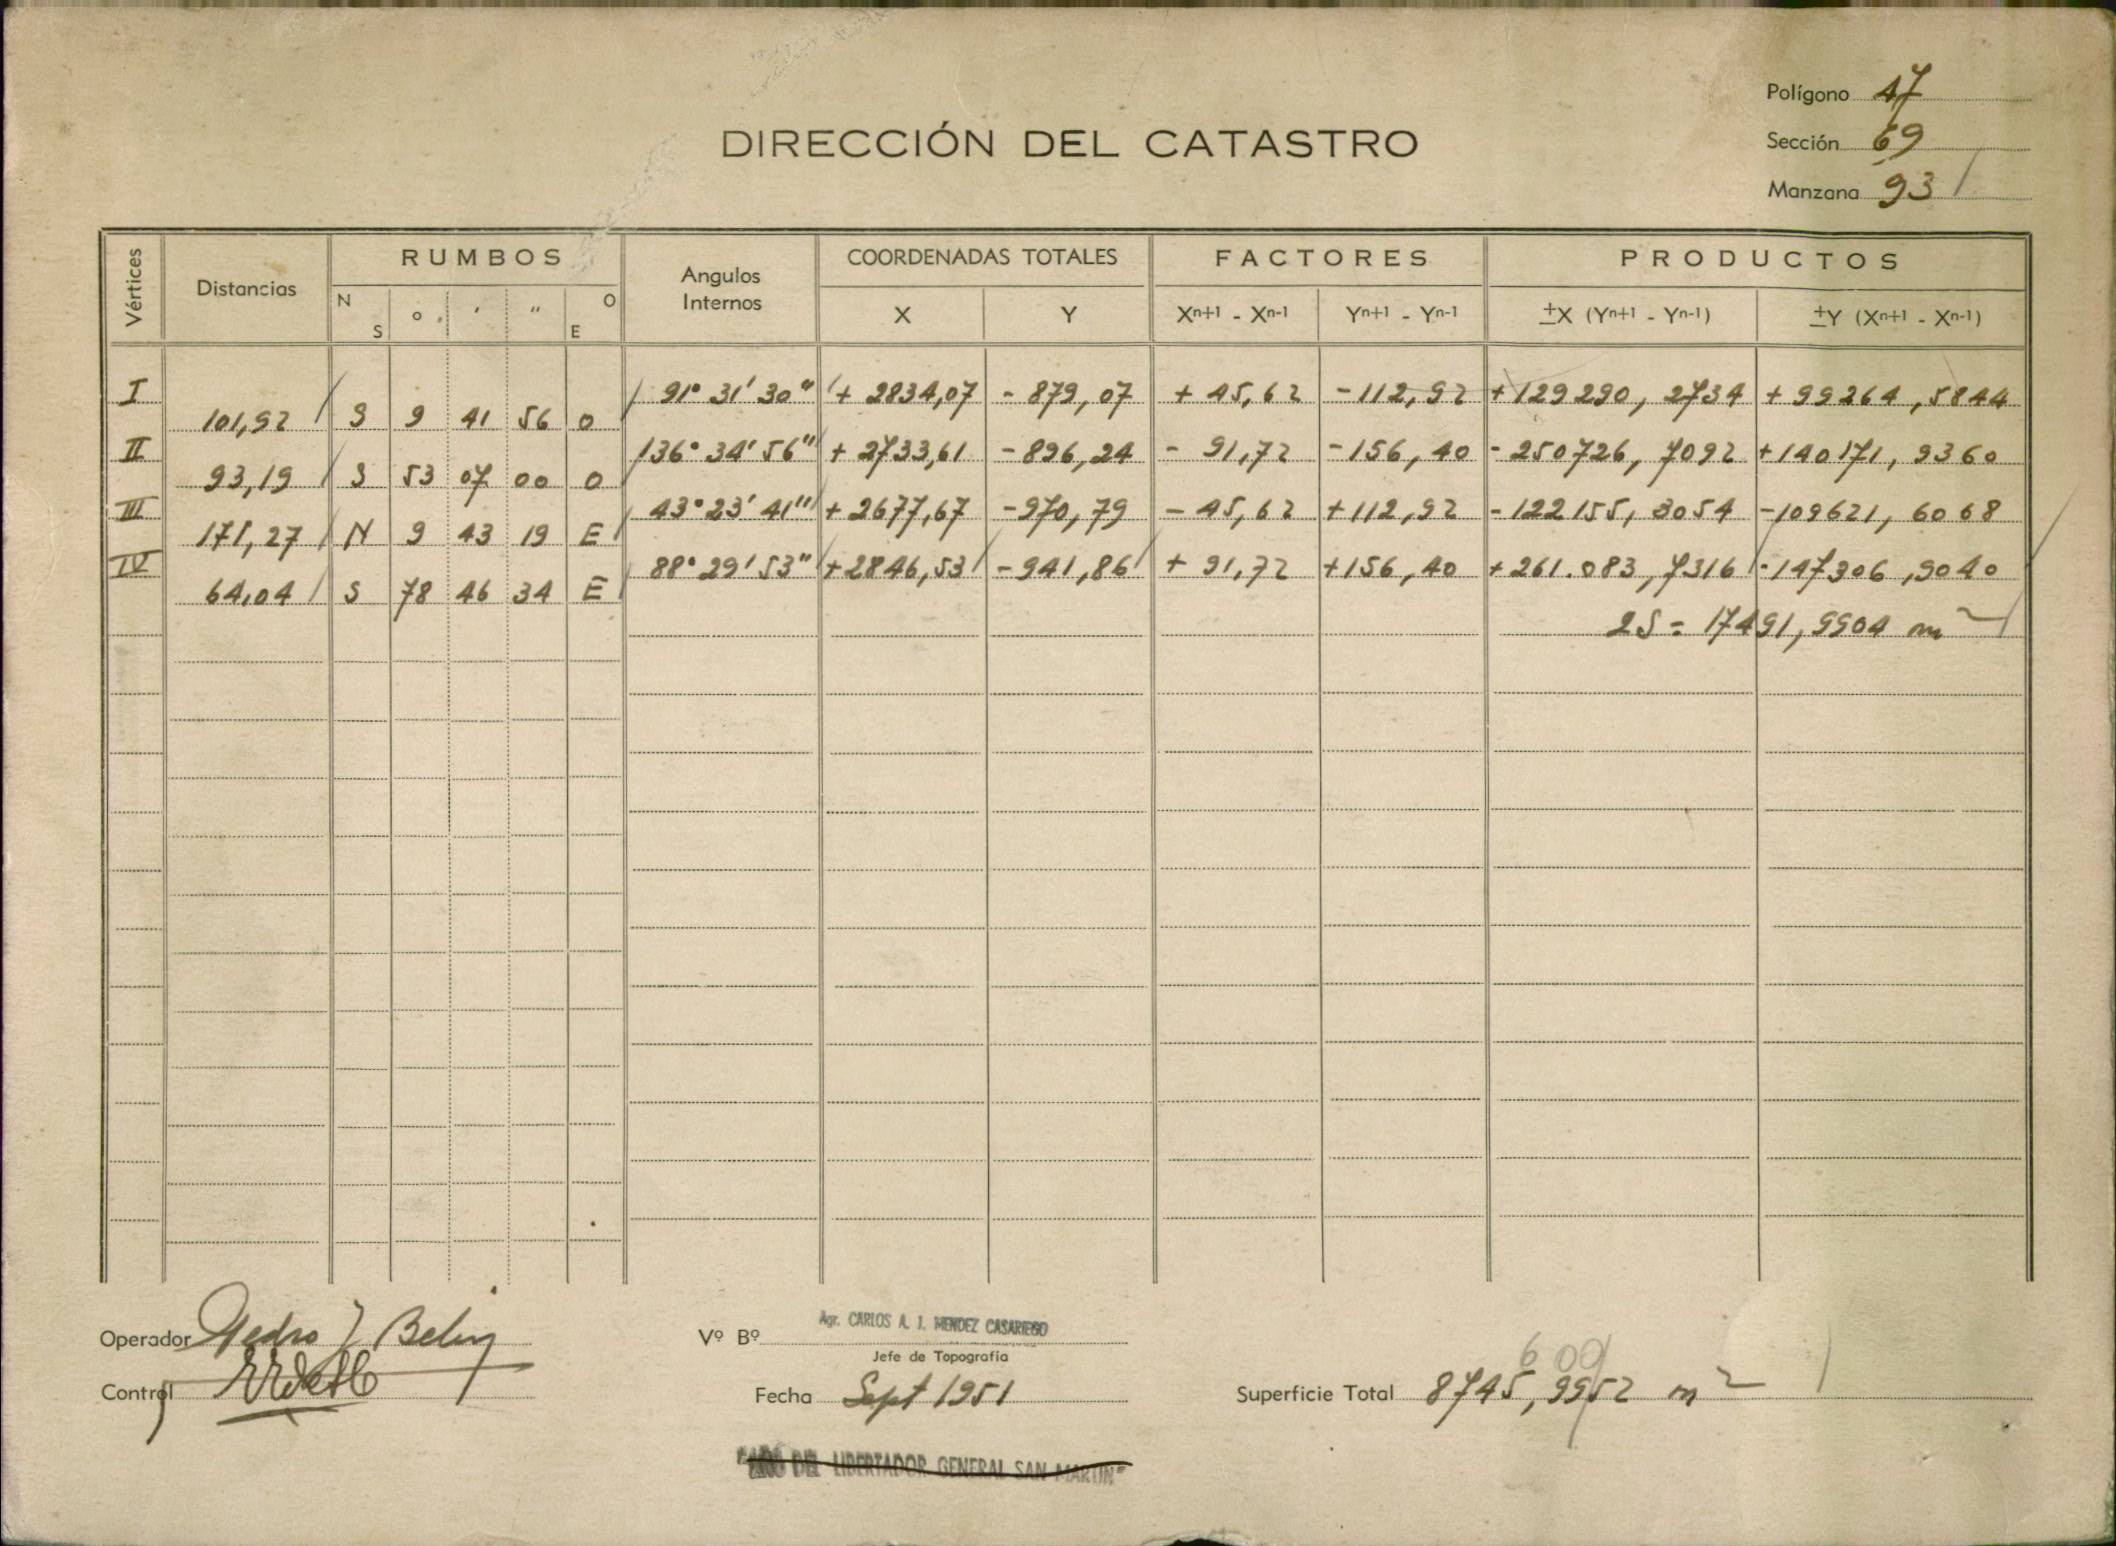 Polígono 47
DIRECCIÓN DEL CATASTRO
Sección 69
Manzana 93 /
Vértices Distancias RUMBOS Angulos Internos COORDENADAS TOTALES FACTORES PRODUCTOS
N S o ' " O E X Y Xn+1 - Xn-1 Yn+1 - Yn-1 ±X (Yn+1 - Yn-1) ±Y (Xn+1 - Xn-1)
I 91° 31' 30" + 2834,07 - 879,07 + 45,62 - 112,92 + 129290,2734 + 99264,5844
101,92 S 9 41 56 O
II 136° 34' 56" + 2733,61 - 896,24 - 91,72 - 156,40 - 250726,7092 + 140171,9360
93,19 S 53 07 00 O
III 43° 23' 41" + 2677,67 - 970,79 - 45,62 + 112,92 - 122155,3054 - 109621,6068
171,27 N 9 43 19 E
IV 88° 29' 53" + 2846,53 - 941,86 + 91,72 + 156,40 + 261.083,7316 - 147306,9040
64,04 S 78 46 34 E
2S = 17491,9904 m²
Operador Pedro J Belin
Vº Bº Agr. CARLOS A. J. MENDEZ CASARIEGO
Jefe de Topografía
600
Control
Fecha Sept 1951
Superficie Total 8745,9952 m²
"AÑO DEL LIBERTADOR GENERAL SAN MARTIN"